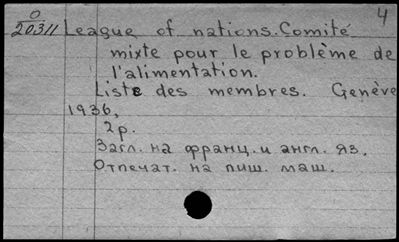 4
O
20311
League of nations. Comité
mixte pour le problème de
l'alimentation.
Liste des membres. Genève
1936,
2p.
Загл. на франц. и англ. яз.
Отпечат. на пиш. маш.